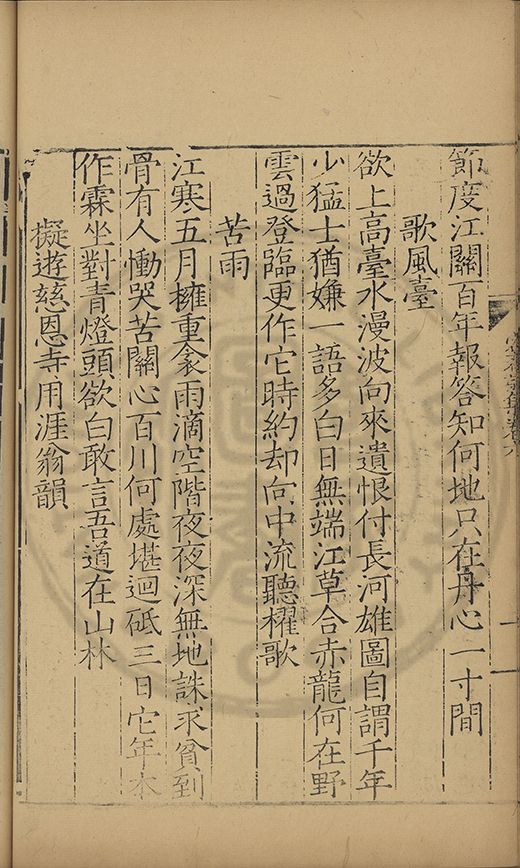 節度江關百年報答知何地只在丹心一寸間
歌風臺
欲上高臺水漫波向來遺恨付長河雄圖自謂千年
少猛士猶嫌一語多白日無端江草合赤龍何在野
雲過登臨更作它時約却向中流聽櫂歌
苦雨
江寒五月擁重衾雨滴空階夜夜深無地誅求貧到
骨有人慟哭苦關心百川何處堪迴砥三日它年本
作霖坐對青燈頭欲白敢言吾道在山林
擬遊慈恩寺用涯翁韻